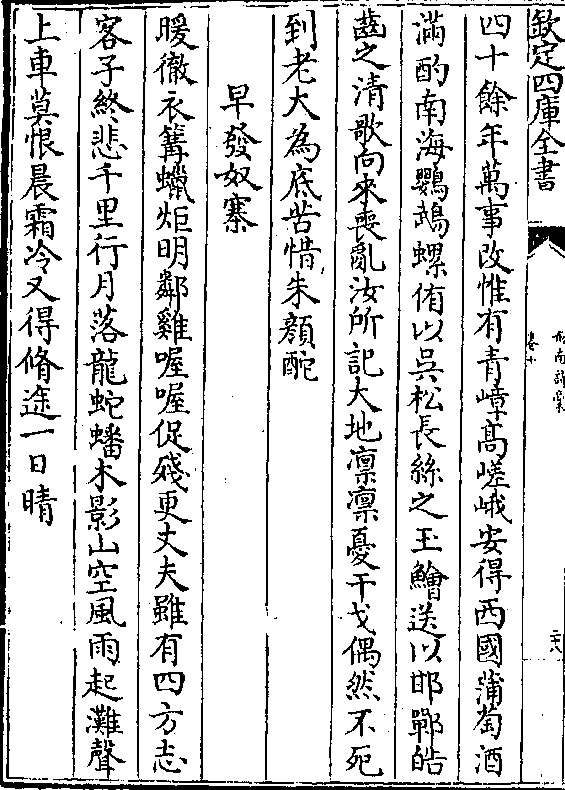 欽定四庫全書
劒南詩稾
卷十
二十八
四十餘年萬事改惟有青嶂髙嵯峨安得西國蒲萄酒
滿酌南海鸚鵡螺侑以吳松長絲之玉鱠送以邯鄲皓
齒之清歌向來喪亂汝所記大地凛凛憂干戈偶然不死
到老大為底苦惜朱顔酡
早發奴寨
暖徹衣篝蠟炬明鄰雞喔喔促殘更丈夫雖有四方志
客子終悲千里行月落龍蛇蟠木影山空風雨起灘聲
上車莫恨晨霜冷又得脩途一日晴